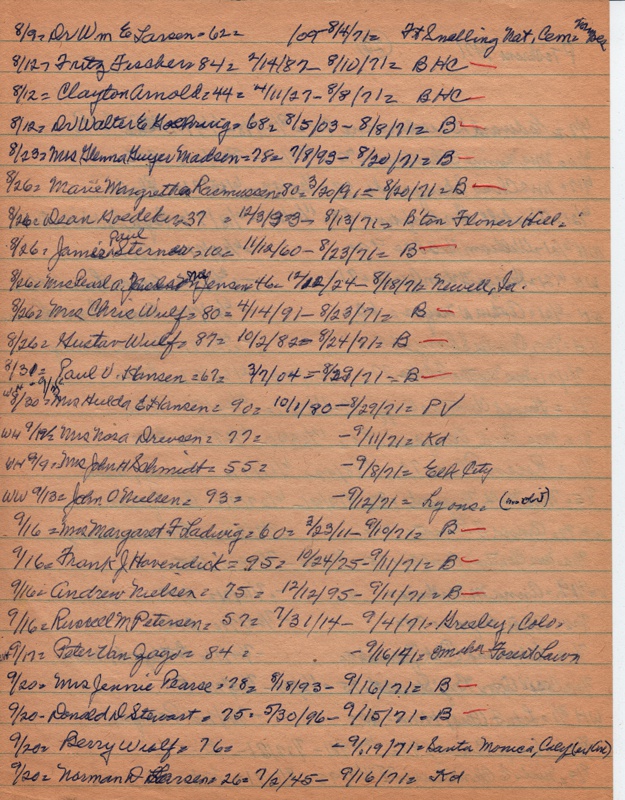 8/9= Dr Wm E Larsen = 62= /09 - 8/4/71= Ft Snelling Nat, Cem=
8/12= Fritz Fischer= 84= 2/14/87 - 8/10/71= BHC —
8/12= Clayton Arnold= 44= 4/11/27 - 8/8/71= BHC —
8/12= Dr Walter E = 68= 8/5/03 - 8/8/71= B —
8/23= Mrs Henna Geyer Madsen= 78= 7/8/93 - 8/20/71= B —
8/26= Marie Margrethe Rasmussen= 80= 3/20/91 = 8/20/71= B —
8/26= Dean Goedeker= 37 = 12/3/33 - 8/13/71= B'ton Flower Hill=
8/26= James Paul Sterner= 10= 11/12/60 - 8/23/71= B —
8/26= Mrs Pearl A Jensen= 46= /24 - 8/18/71= Newell, Ia.
8/26= Mrs Chris Wulf= 80= 4/14/91 - 8/23/71= B —
8/26= Gustav Wulf= 87= 10/2/82= 8/24/71= B —
8/31= Paul V. Hansen= 67= 3/7/04 = 8/29/71= B —
8/30= Mrs Hulda E Hansen= 90= 10/1/80 - 8/29/71= PV
WH 9/19= Mrs Nora Drevsen= 77= - 9/11/71= Kd
WH 9/9= Mrs John H Schmidt= 55= - 9/8/71= Elk City
WW 9/13= John O Nielsen= 93= - 9/12/71= Lyons=
9/16= Mrs Margaret F Ladwig= 60= 2/23/11 - 9/10/71= B —
9/16= Frank J Hovendick= 95= 10/24/75 - 9/11/71= B —
9/16= Andrew Nielsen= 75= 12/12/95 - 9/11/71= B —
9/16= Russell M Petersen= 57= 7/31/14 - 9/4/71= Greeley, Colo=
9/17= Peter Van Zago= 84= - 9/16/71= Omaha Forest Lawn
9/20= Mrs Jennie Pearse= 78= 8/18/93 - 9/16/71= B —
9/20- Donald D Stewart= 75= 5/30/96 - 9/15/71= B —
9/20= Berry Wulf= 76= - 9/19/71= Santa Monica, Caly
9/20= Norman D Larsen= 26= 7/2/45 - 9/16/71= Kd